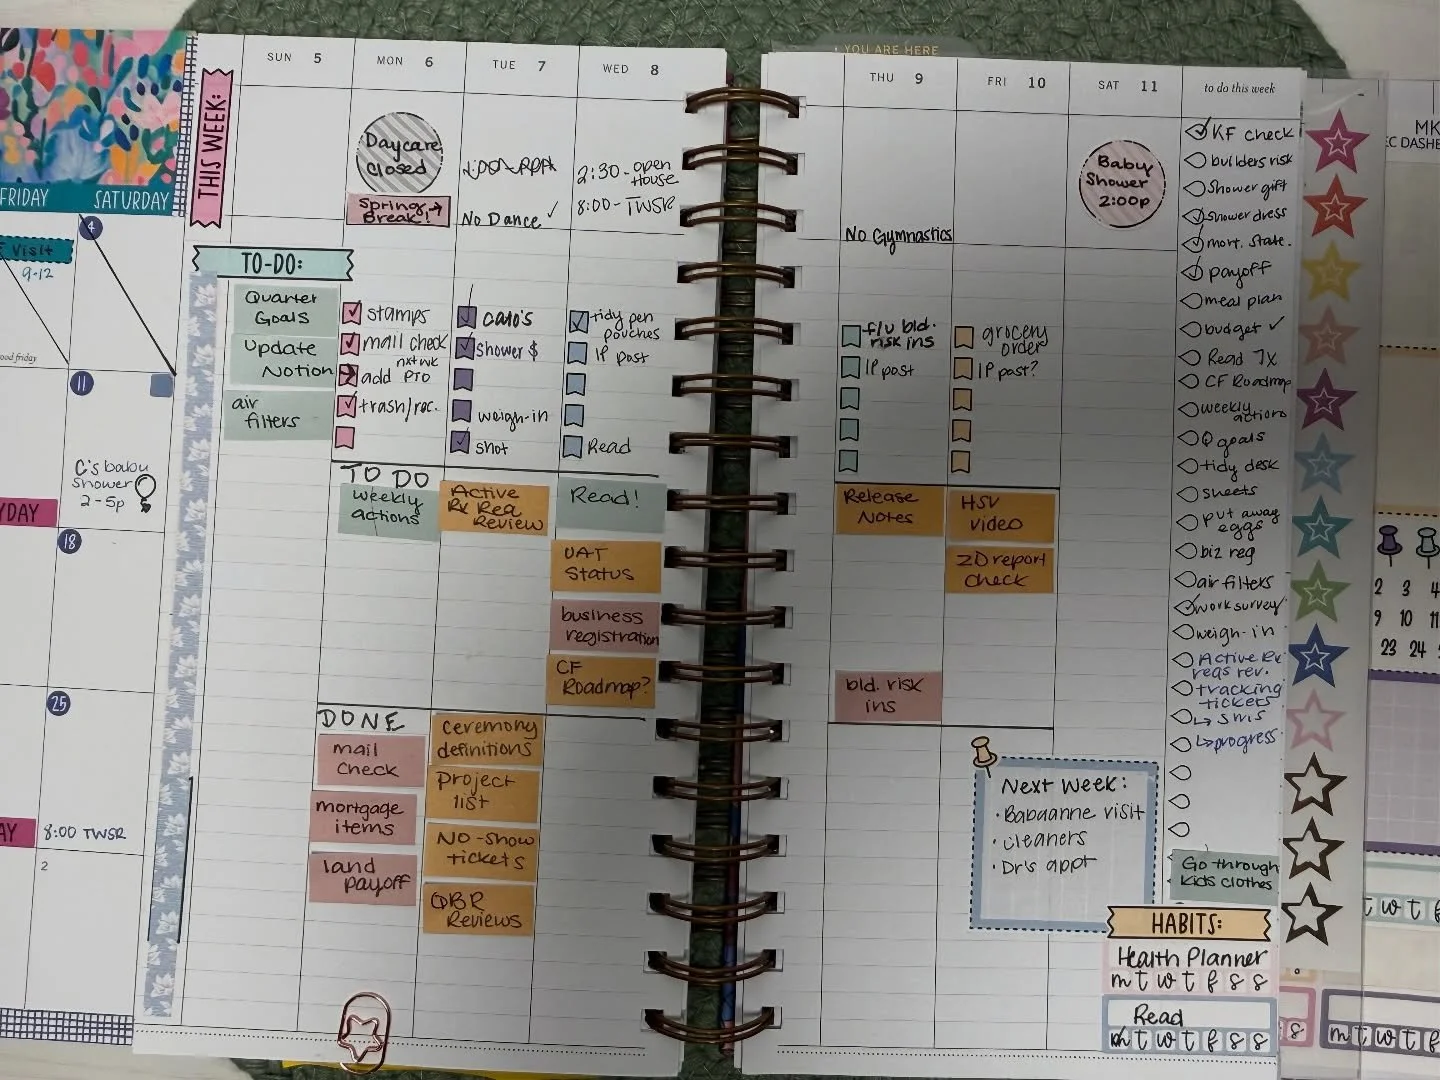 YOU ARE HERE
FRIDAY SATURDAY
Visit
9-12
4
ood friday
11
C's baby
shower
2-5p
YDAY
18
25
AY
8:00 TWSR
2
THIS WEEK:
SUN 5
MON 6
TUE 7
WED 8
THU 9
FRI 10
SAT 11
to do this week
Daycare
Closed
Spring
Break!
No Dance ✓
2:30-open
house
8:00-TWSR
No Gymnastics
Baby
Shower
2:00p
TO-DO:
Quarter
Goals
Update
Notion
air
filters
stamps
mail check
nxt wk
add PTO
trash/rec.
shower $
weigh-in
shot
tidy pen
pouches
IP post
Read
f/u bld.
risk ins
IP post
grocery
order
IP post?
TO DO
weekly
actions
Active
Rx Req
Review
Read!
UAT
Status
business
registration
CF
Roadmap?
Release
Notes
HSV
video
ZD report
check
bld. risk
ins
DONE
mail
check
mortgage
items
land
payoff
ceremony
definitions
Project
list
No-show
tickets
QBR
Reviews
Next week:
· Babaanne visit
· cleaners
· Dr's appt
KF check
builders risk
Shower gift
shower dress
mort. state.
payoff
meal plan
budget ✓
Read 7x
CF Roadmap
weekly
actions
Q goals
tidy desk
sheets
put away
eggs
biz reg
air filters
work survey
weigh-in
Active Rx
reqs rev.
tracking
tickets
↳ sms
↳ progress
Go through
kids clothes
HABITS:
Health Planner
m t w t f s s
Read
m t w t f s s
MK
EC DASHB
2 3 4
9 10 11
23 24
t w t f
s
m t w t f